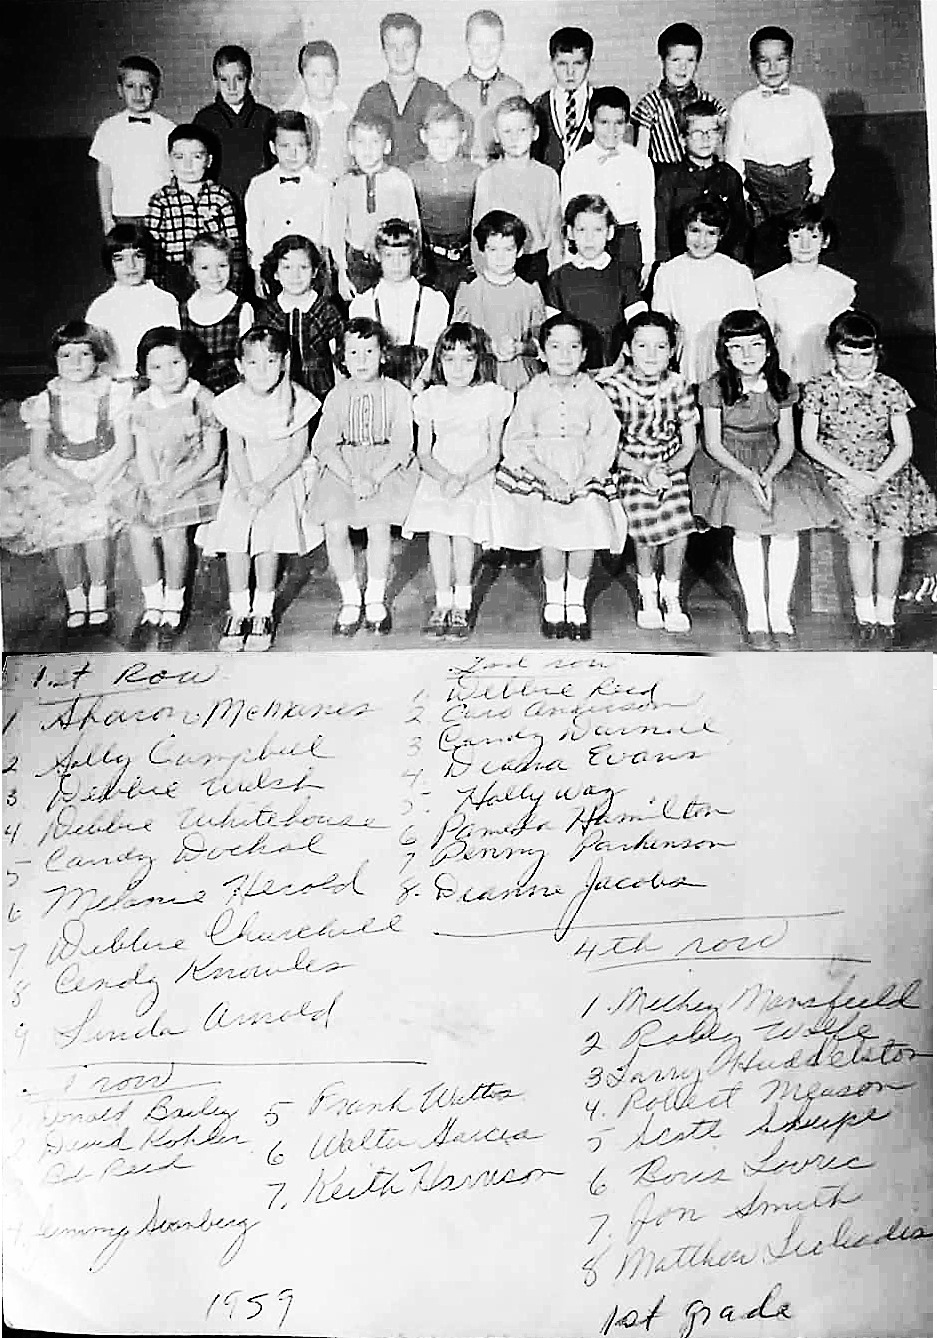 1st Row
1 Sharon McManes
2 Sally Campbell
3 Debbie Welsh
4 Debbie Whitehouse
5 Candy Dockal
6 Melanie Herold
7 Debbie Churchill
8 Cendy Knowles
9 Linda Arnold
2nd row
1 Debbie Reed
2 Caro Anderson
3 Candy
4. Diana Evans
5 Holly Way
6 Pamela Hamilton
7 Penny Parkenson
8. Dianne Jacobs
row
Donald Bailey
2 David Kohler
Bob Reed
4. Jimmy
5 Frank Watts
6 Walter Garcia
7. Keith Harrison
4th row
1. Mickey Mansfield
2 Robby Wolfe
3 Larry Huddelston
4. Robert Meason
5 Scott Shupe
6 Boris Lovric
7. Jon Smith
8 Matthew
1959
1st grade